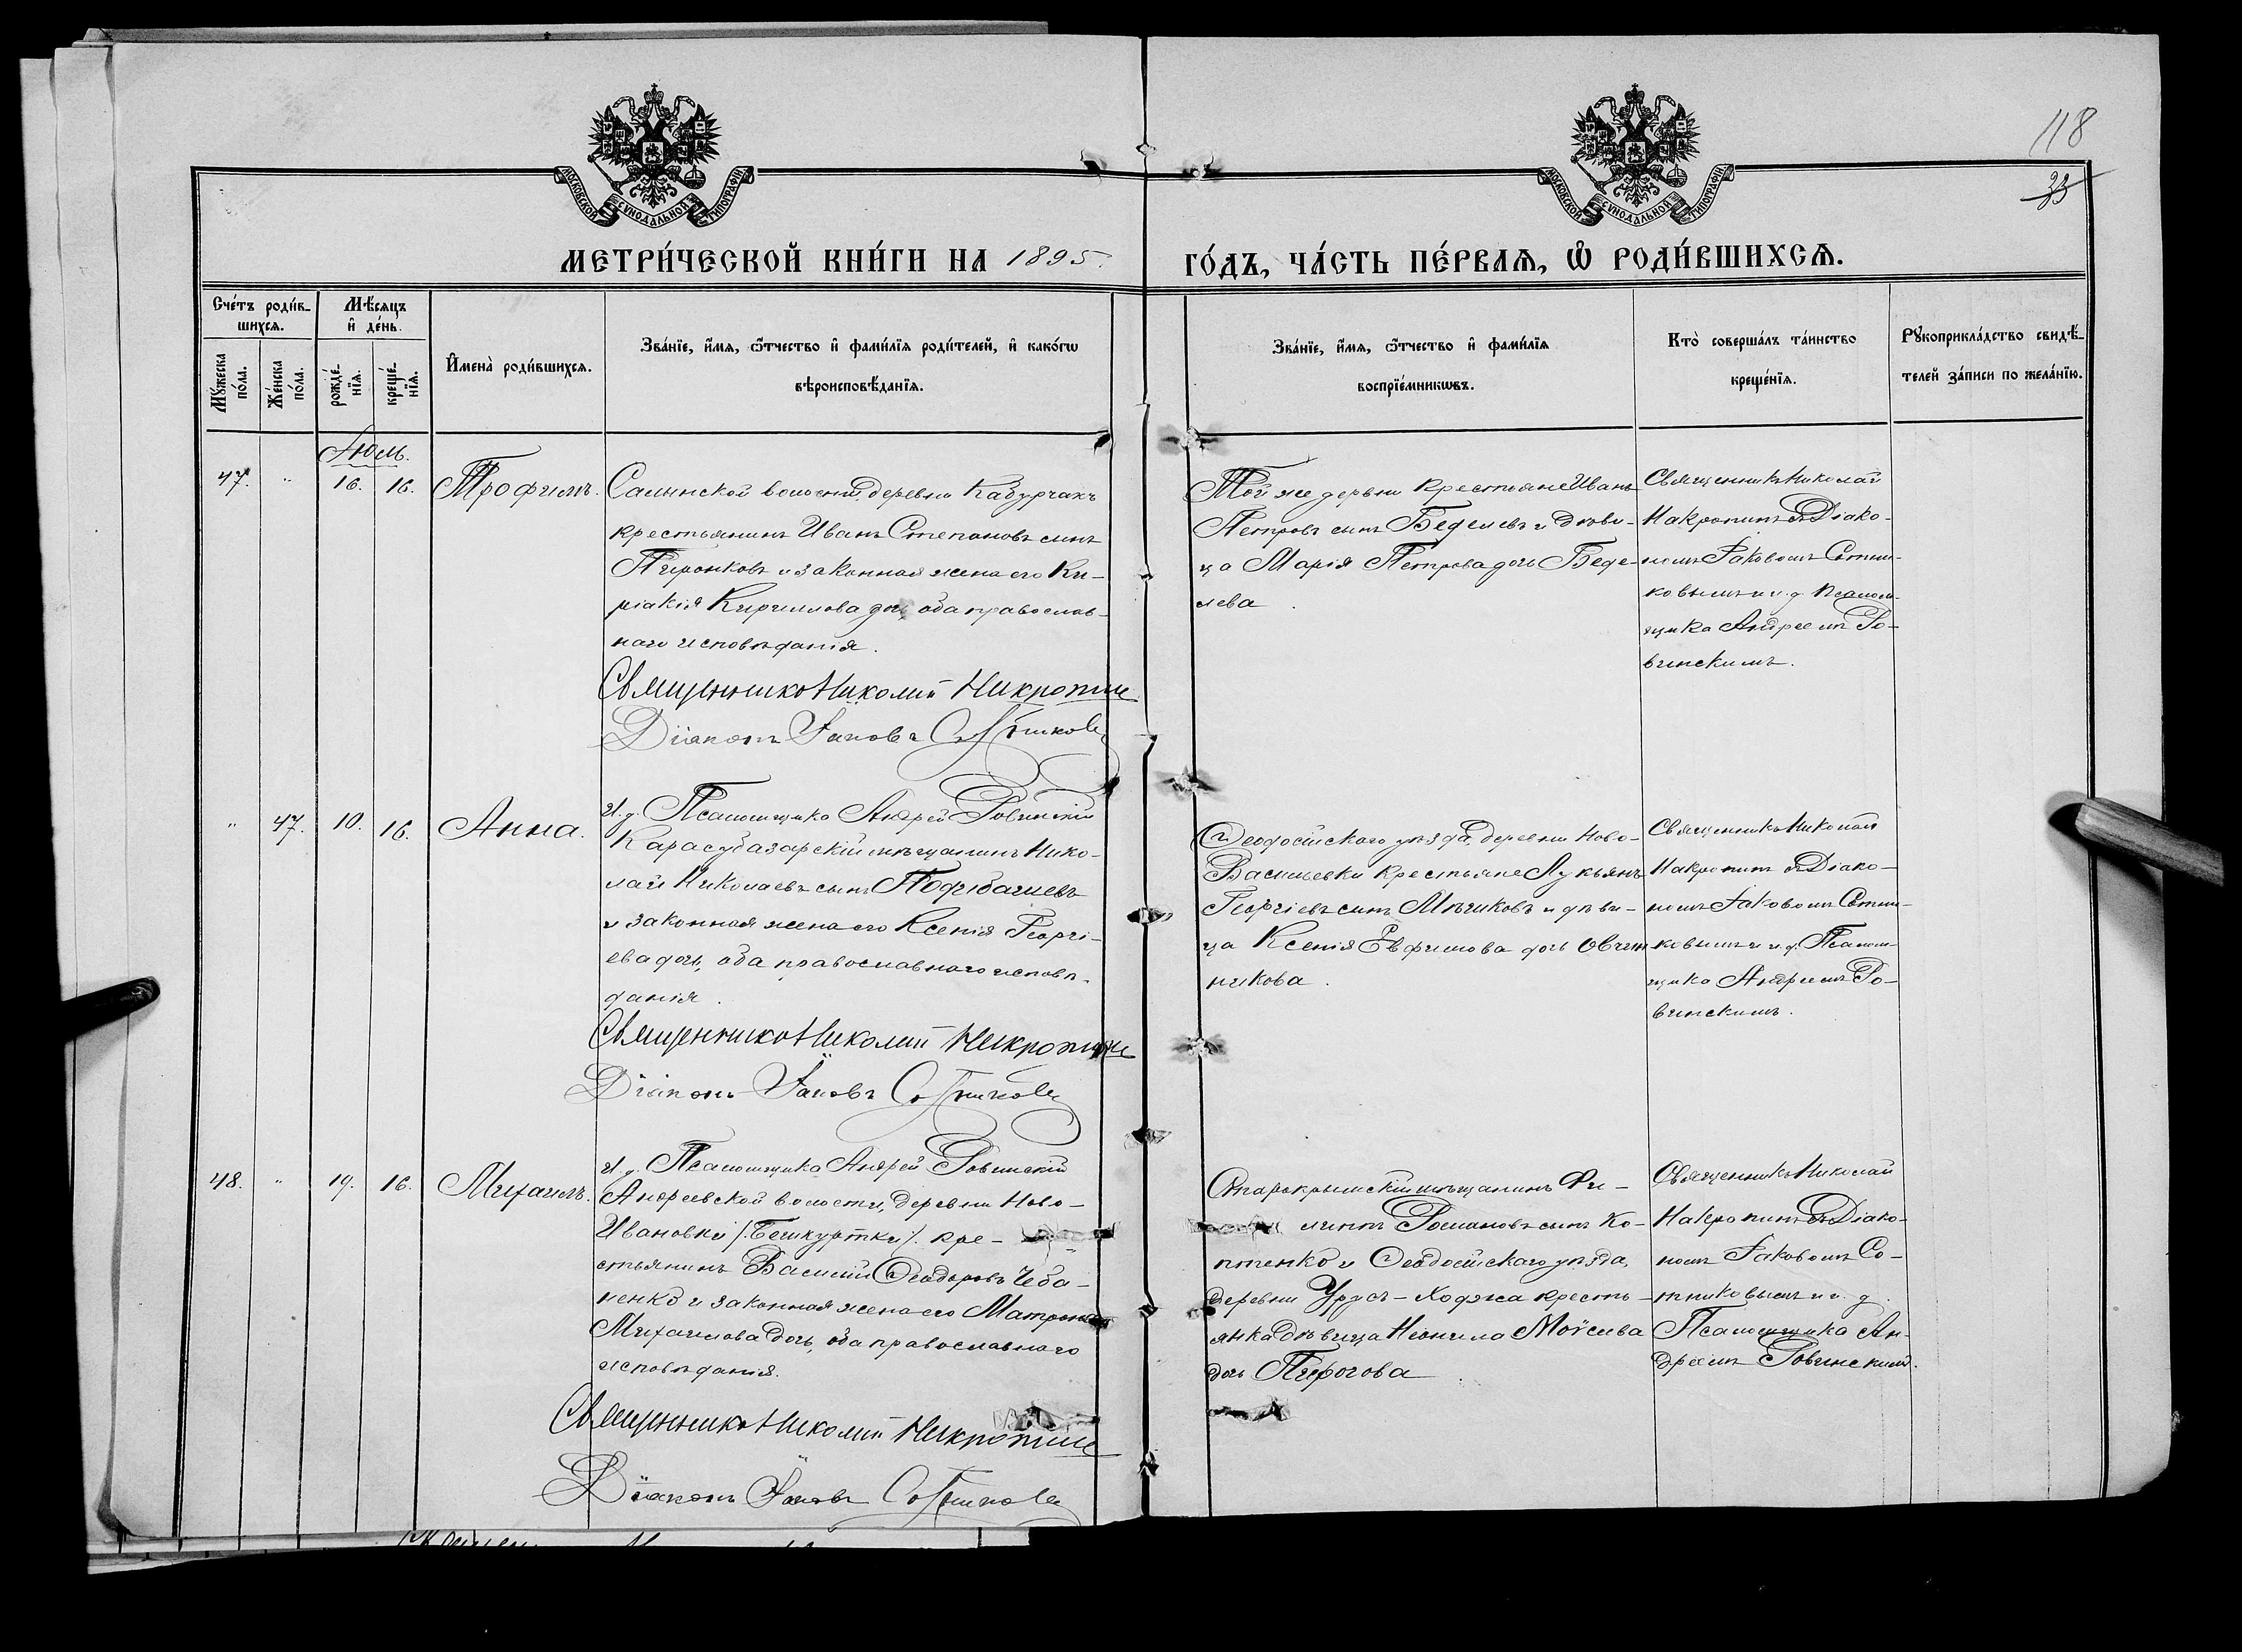 118
33
МОСКОВСКОЙ СѴНОДАЛЬНОЙ ТИПОГРАФІИ
МОСКОВСКОЙ СѴНОДАЛЬНОЙ ТИПОГРАФІИ
МЕТРИ́ЧЕСКОЙ КНИ́ГИ НА 1895.
ГО́ДЪ, ЧА́СТЬ ПЕ́РВАѦ, Ѡ҆ РОДИ́ВШИХСѦ.
Сче́тъ роди́в-
шихсѧ.
Мꙋ́жеска по́ла.
Же́нска по́ла.
Мѣ́сѧцъ
и҆ де́нь.
рожде́-
нїѧ.
креще́-
нїѧ.
И҆мена̀ роди́вшихсѧ.
Зва́нїе, и҆́мѧ, ѻ҆́тчество и҆ фами́лїѧ роди́телей, и҆ како́гѡ
вѣроисповѣ́данїѧ.
Зва́нїе, и҆́мѧ, ѻ҆́тчество и҆ фами́лїѧ
воспрїе́мникѡвъ.
Кто̀ соверша́лъ та́инство
креще́нїѧ.
Рꙋкоприкла́дство свидѣ́-
телей за́писи по жела́нїю.
Іюль.
47. " 16. 16. Трофимъ.
Салынской волости, деревни Кабурчакъ
крестьянинъ Иванъ Степановъ сынъ
Пиронковъ и законная жена его Ки-
ріакія Кириллова дочь, оба православ-
наго исповѣданія.
Священникъ Николай Накропинъ
Діаконъ Іаковъ Сотниковъ
И. д. Псаломщика Андрей Ровинскій
Той же деревни крестьяне Иванъ
Петровъ сынъ Беделевъ и дѣви-
ца Марія Петрова дочь Беде-
лева.
Священникъ Николай
Накропинъ съ Діако-
номъ Іаковомъ Сотни-
ковымъ и и. д. Псалом-
щика Андреемъ Ро-
винскимъ.
" 47. 10. 16. Анна.
Карасубазарскій мѣщанинъ Нико-
лай Николаевъ сынъ
и законная жена его Ксенія Георгі-
ева дочь, оба православнаго исповѣ-
данія.
Священникъ Николай Накропинъ
Діаконъ Іаковъ Сотниковъ
И. д. Псаломщика Андрей Ровинскій
Ѳеодосійскаго уѣзда, деревни Ново-
Васильевки крестьяне Лукьянъ
Георгіевъ сынъ Мѣчиковъ и дѣви-
ца Ксенія Евфимова дочь Овчин
никова.
Священникъ Николай
Накропинъ съ Діако-
номъ Іаковомъ Сотни-
ковымъ и и. д. Псалом-
щика Андреемъ Ро-
винскимъ.
48. " 19. 16. Михаилъ.
Андреевской волости, деревни Ново-
Ивановки /:Бешкуртки:/ кре-
стьянинъ Василій Ѳеодоровъ Чеба-
ненко и законная жена его Матрона
Михаилова дочь, оба православнаго
исповѣданія.
Священникъ Николай Накропинъ
Діаконъ Іаковъ Сотниковъ
Старокрымскій мѣщанинъ Фи-
липпъ Романовъ сынъ Ко-
птенко и Ѳеодосійскаго уѣзда,
деревни Урусъ-Ходжа кресть-
янка Дѣвица Неонила Моѵсеева
дочь Пирогова.
Священникъ Николай
Накропинъ съ Діако-
номъ Іаковомъ Со-
тниковымъ и и. д.
Псаломщика Ан-
дреемъ Ровинскимъ.